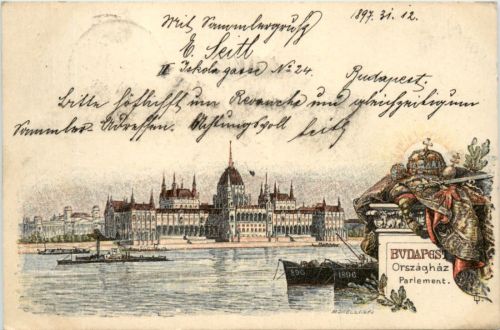 Mit Sammlergruß
1897. 31. 12.
E. Seitl
II Iskola gasse № 24.
Budapest.
Bitte höflichst um Revanche und gleichzeitigum
Sammler-Adressen. Achtungsvoll
Seitl
BUDAPEST
Országház
Parlement.
896
1896